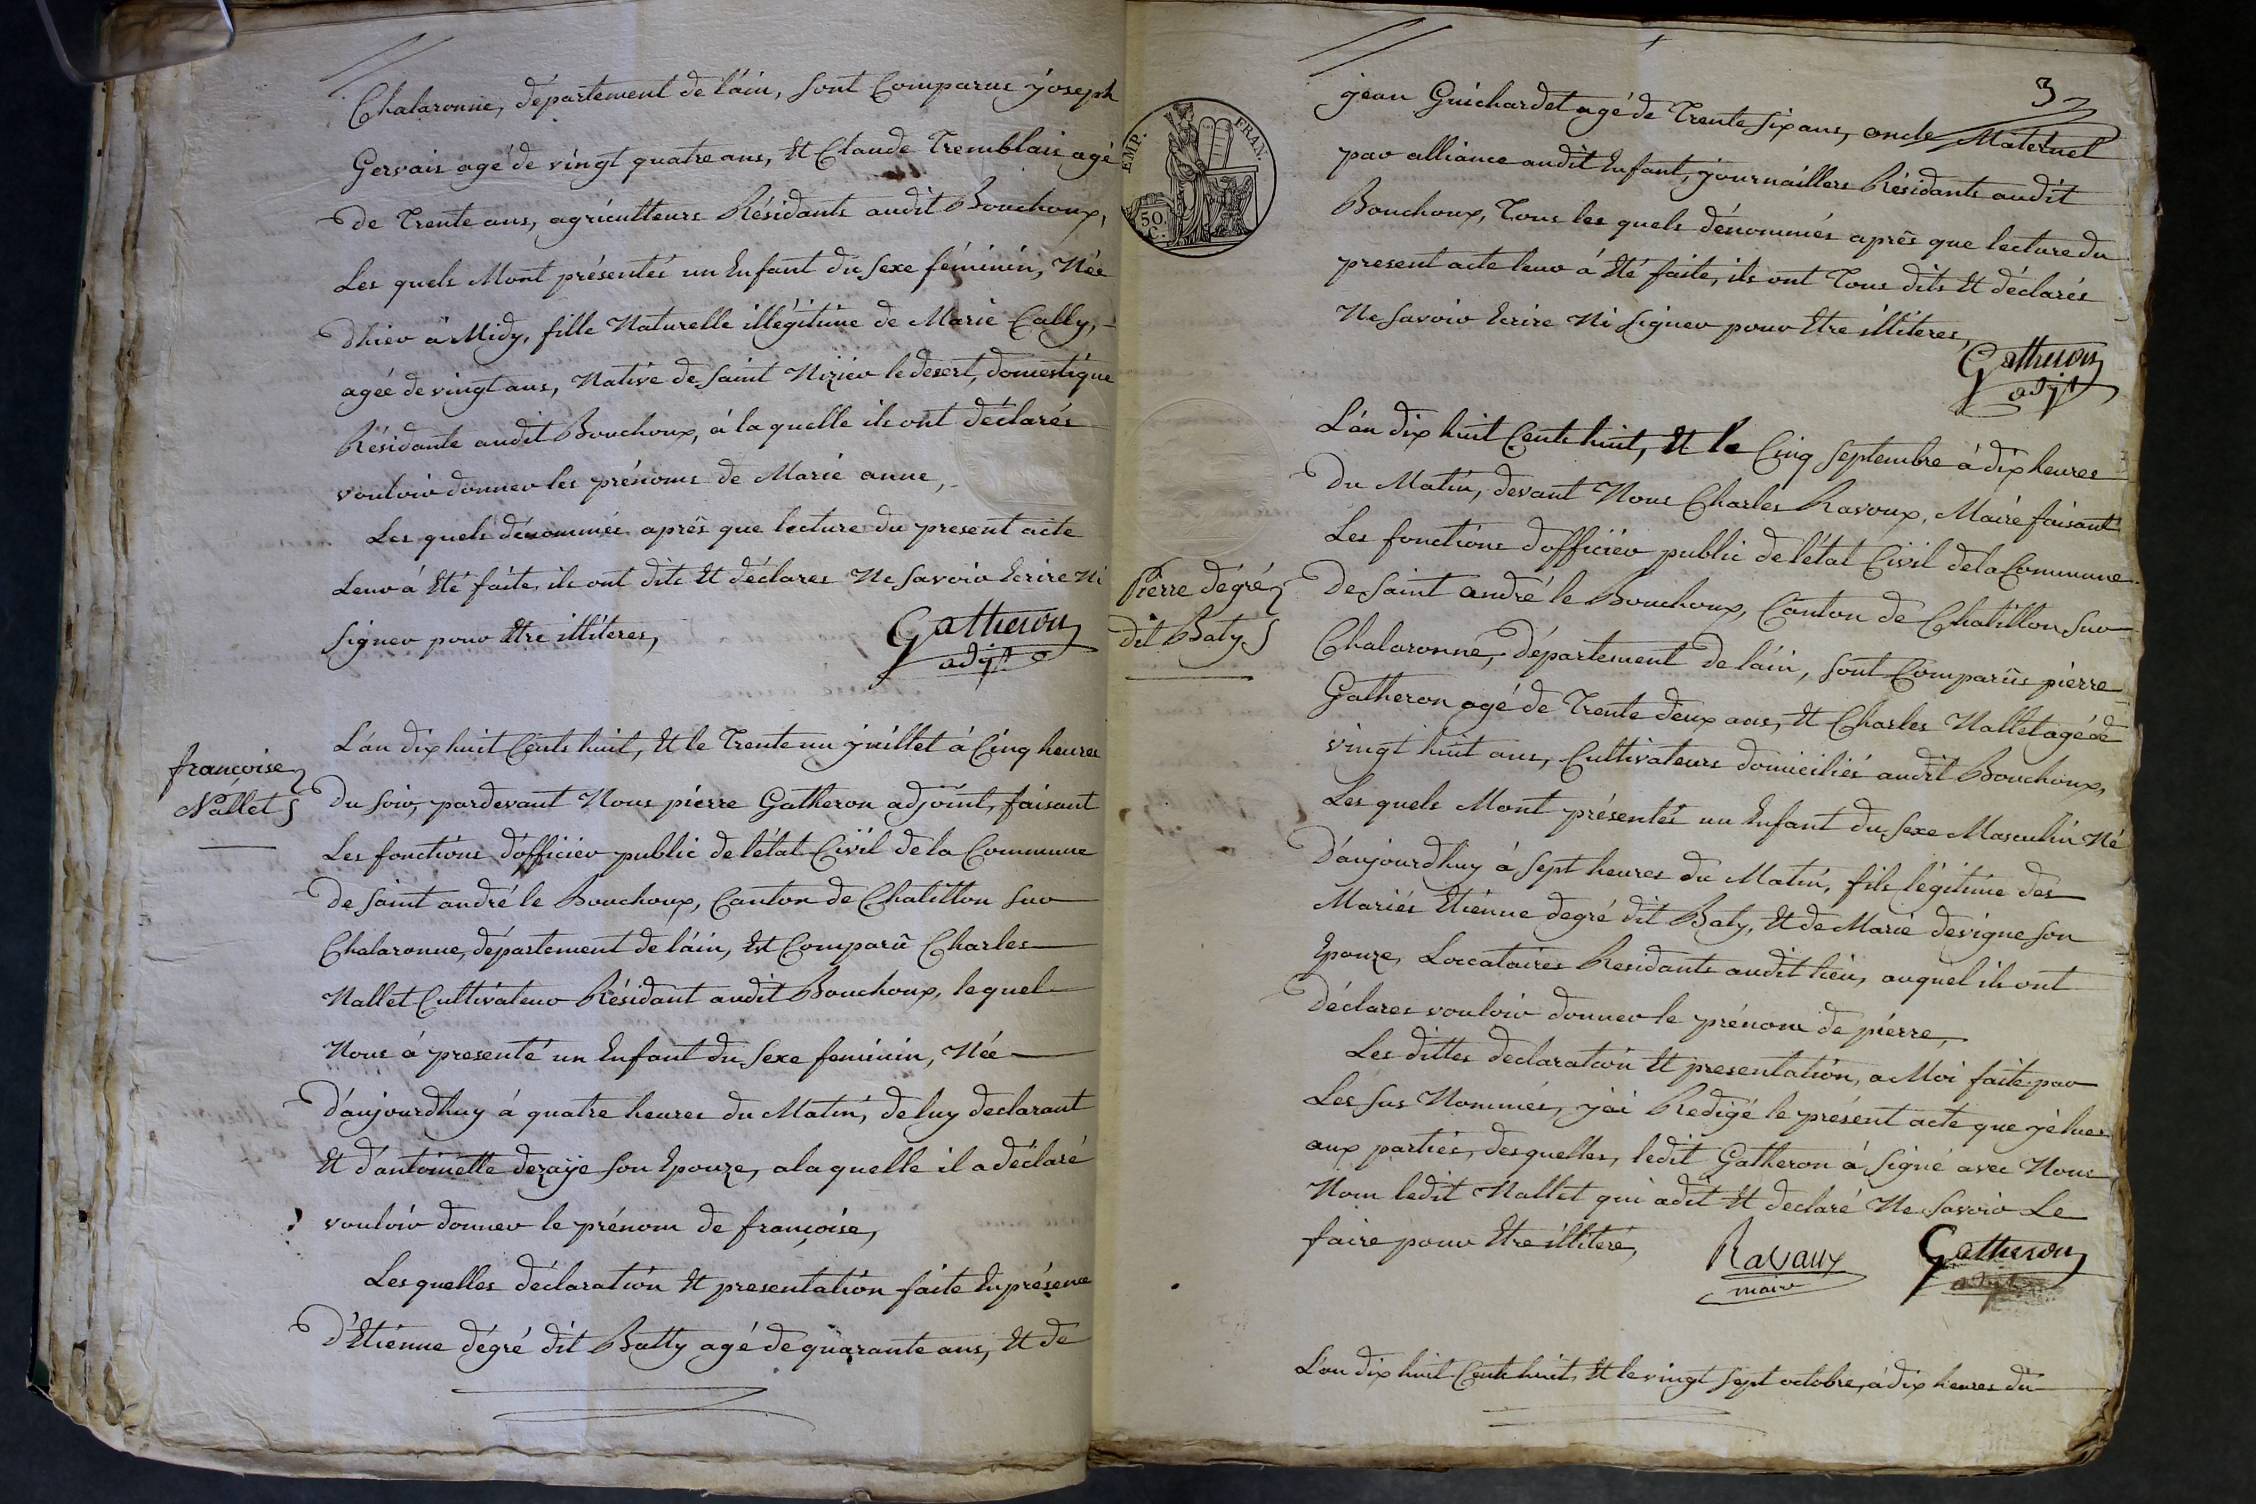 Chalaronne, département de láin, sont Comparus joseph
Gervais agé de vingt quatre ans, Et Claude Tremblais agé
de Trente ans, agriculteurs Résidants audit Bouchoux,
Les quels Mont présentés un Enfant du sexe féminin, Née
dhier á Midy, fille Naturelle illégitime de Marie Cally,
agée de vingt ans, Native de saint Nizier le desert, domestique
Résidante audit Bouchoux, á la quelle ils ont déclarés
vouloir donner les prénoms de Marie anne,
Les quels dénommés aprês que lecture du present acte
Leur á Eté faite, ils ont dits Et déclares Ne savoir Ecrire Ni
signer pour Etre illiteres,
Gatheron
adjt
françoise
Nallet
L'an dix huit Cents huit, Et le Trente un juillet á Cinq heures
du soir, pardevant Nous pierre Gatheron adjoint, faisant
Les fonctions d'officier public de létat Civil de la Commune
de saint andré le Bouchoux, Canton de Chatillon sur
Chalaronne, département de láin, Est Comparû Charles
Nallet Cultivateur Résidant audit Bouchoux, lequel
Nous á presenté un Enfant du sexe feminin, Née
d'aujourdhuy á quatre heures du Matin, de luy declarant
Et d'antoinette dezaÿe son Epouze, a la quelle il a déclaré
vouloir donner le prénom de françoise,
Les quelles déclaration Et presentation faite En présence
d'Etienne dégré dit Batty agé de quarante ans, Et de
3
EMP. FRAN.
50.
C.
jean Guichardet agé de Trente six ans, oncle Maternel
par alliance audit Enfant, journailliers Résidants audit
Bouchoux, Tous les quels dénommés aprês que lecture du
present acte leur á Eté faite, ils ont Tous dits Et déclarés
Ne savoir Ecrire Ni signer pour Etre illiteres,
Gatheron
adjt
Pierre dégré
dit Baty
L'án dix huit Cents huit, Et le Cinq septembre á dix heures
du Matin, devant Nous Charles Ravoux, Maire faisant
Les fonctions d'officier public de létat Civil de la Commune
de saint andré le Bouchoux, Canton de Chatillon sur
Chalaronne, département de láin, sont Comparûs pierre
Gatheron agé de Trente deux ans, Et Charles Nallet agé de
vingt huit ans, Cultivateurs domiciliés audit Bouchoux,
Les quels Mont présentés un Enfant du sexe Masculin Né
d'aujourdhuy á sept heures du Matin, fils légitime des
Mariés Etienne degré dit Baty, Et de Marie devigne son
Epouze, Loccataires Residants audit lieu, auquel ils ont
déclares vouloir donner le prénom de pierre,
Les dittes declaration Et presentation, a Moi faite par
Les sus Nommés, j'ai Redigé le présent acte que jé lues
aux parties, desquelles, ledit Gatheron á signé avec Nous
Nom ledit Nallet qui a dit Et declaré Ne savoir Le
faire pour Etre illiteré,
Ravoux
maire
Gatheron
L'an dix huit Cents huit, Et le vingt sept octobre, á dix heures du